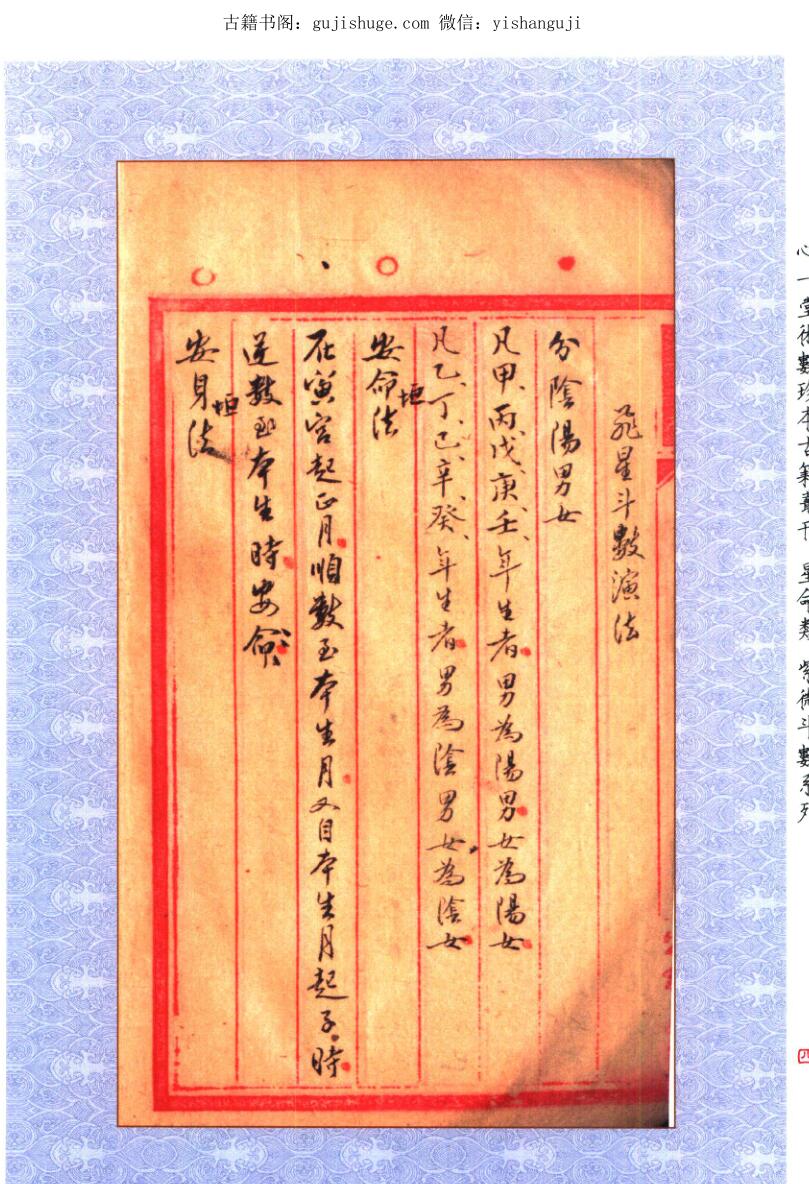 古籍书阁：gujishuge.com 微信：yishanguji
心一堂術數珍本古籍叢刊 星命類 紫微斗數系列
飛星斗數演法
分陰陽男女
凡甲、丙、戊、庚、壬、年生者男為陽男女為陽女
凡乙、丁、己、辛、癸、年生者男為陰男女為陰女
安命垣法
在寅宮起正月順數至本生月又自本生月起子時
逆數至本生時安命
安身垣法